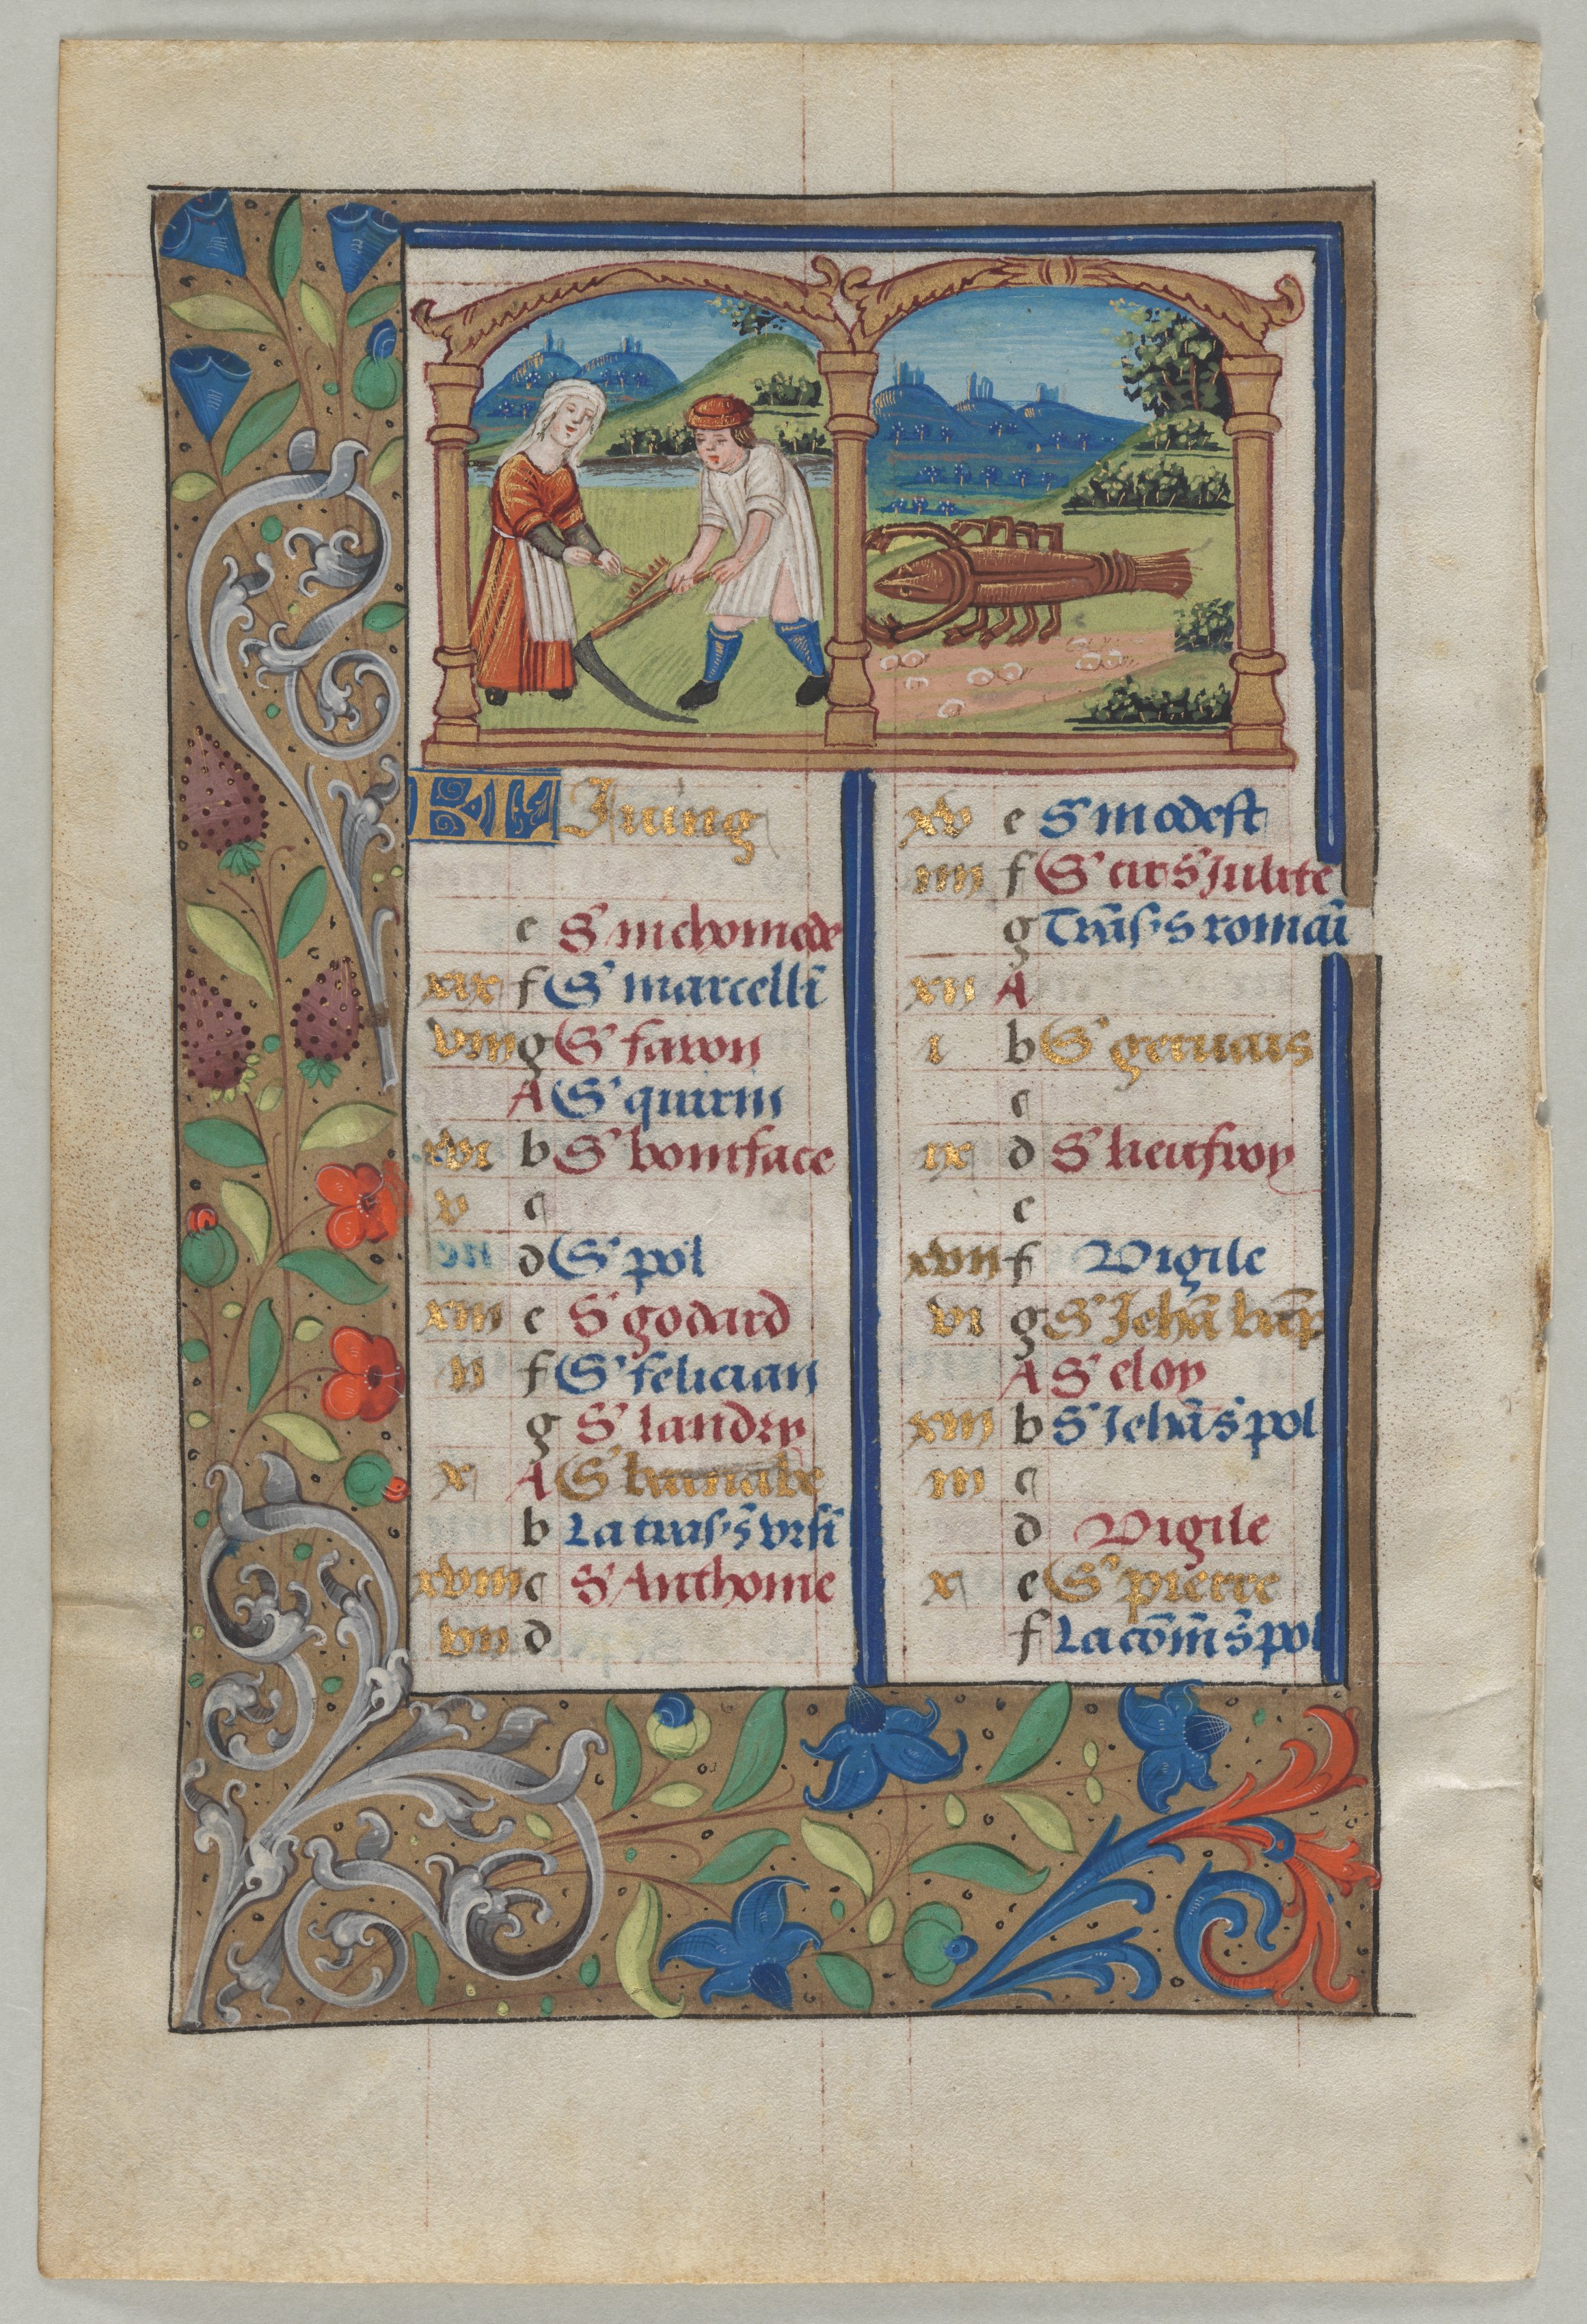 KL Juing
e S' nichomede
xix f S' marcelli̅
viii g S' faron
A S' quirin
xvi b S' boniface
v c
d S' pol
xiii e S' godard
ii f S' felician
g S' landry
x A S' barnabe
b La tras s̅ vrsi̅
xviii c S' Anthoine
vii d
xv e S' modest
iiii f S' cir s̅ Julite
g Tra̅s s romai̅
xii A
i b S' geruais
c
ix d S' leufroy
e
xvii f Vigile
vi g S' Jeha̅ bap̅
A S' eloy
xiiii b S' Jeha̅ s̅ pol
iii c
d Vigile
x e S' pierre
f La co̅m̅ s̅ pol